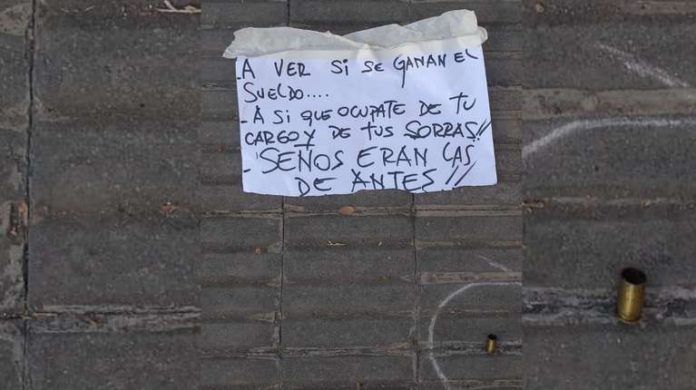 -A VER SI SE GANAN EL
SUELDO....
-A SI QUE OCUPATE DE TU
CARGO Y DE TUS SORRAS!!
- SEÑOS ERAN LAS
DE ANTES!!